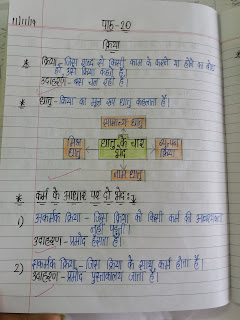 11/11/19
पाठ-20
क्रिया
* क्रिया - जिस शब्द से किसी काम के करने या होने का बोध
हो, उसे क्रिया कहते हैं।
उदाहरण - बस चल रही है।
* धातु - क्रिया का मूल रूप धातु कहलाता है।
सामान्य धातु
मिश्र धातु
धातु के चार भेद
व्युत्पन्न क्रिया
नाम धातु
* कर्म के आधार पर दो भेद:-
1) अकर्मक क्रिया - जिस क्रिया को किसी कर्म की आवश्यकता
नहीं पड़ती।
उदाहरण - प्रमोद हँसता है।
2) सकर्मक क्रिया - जिस क्रिया के साथ कर्म होता है।
उदाहरण - प्रमोद पुस्तकालय जाता है।